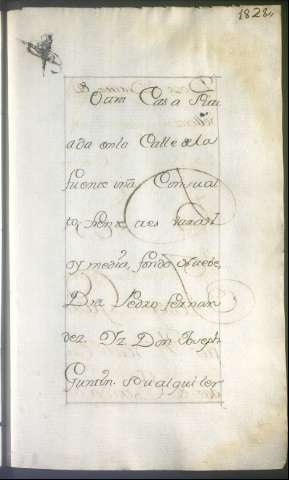 1828,
Otra Casa Situ
ada en la Calle de la
fuente una, Con su al
to, frente a es varas
y media, fondo Nueve,
Dra. Pedro fernan
dez. Vz. Don Joseph
Guntin. Su alquiler